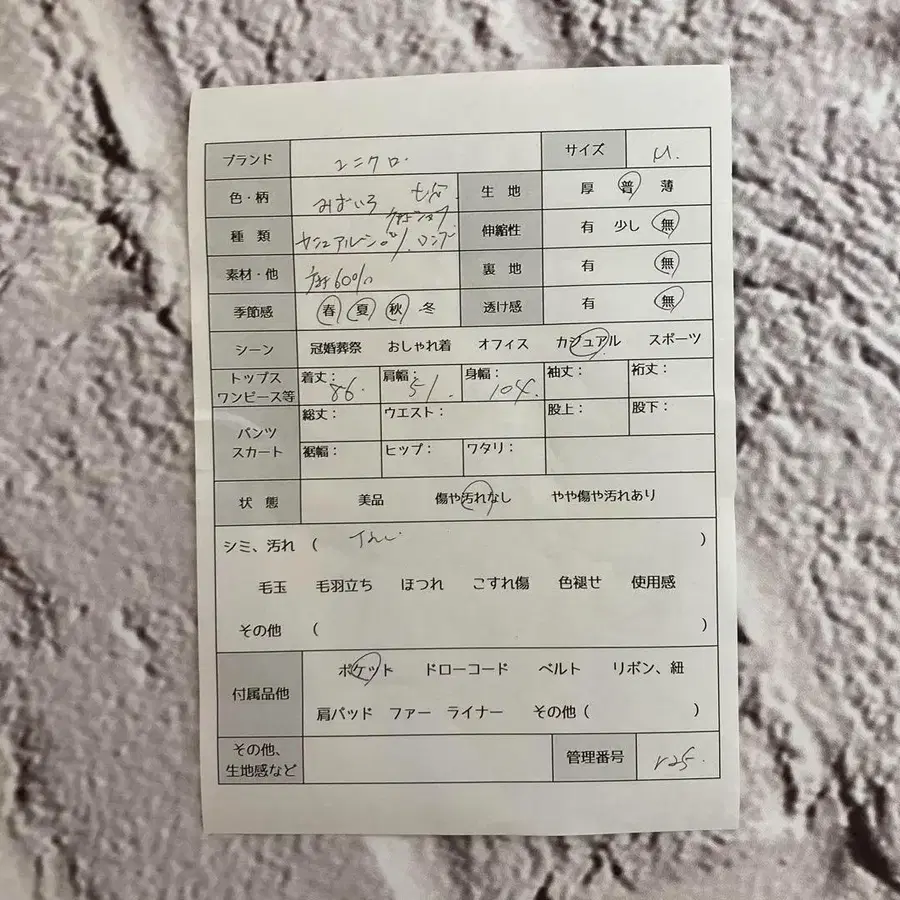 ブランド ユニクロ. サイズ M.
色・柄 みずいろ 七分 生地 厚 普 薄
種類 カジュアルシャツ ロング 伸縮性 有 少し 無
素材・他 麻60% 裏地 有 無
季節感 春 夏 秋 冬 透け感 有 無
シーン 冠婚葬祭 おしゃれ着 オフィス カジュアル スポーツ
トップス ワンピース等 着丈: 86. 肩幅: 51. 身幅: 104. 袖丈: 裄丈:
パンツ スカート 総丈: ウエスト: 股上: 股下:
裾幅: ヒップ: ワタリ:
状態 美品 傷や汚れなし やや傷や汚れあり
シミ、汚れ ( なし )
毛玉 毛羽立ち ほつれ こすれ傷 色褪せ 使用感
その他 ( )
付属品他 ポケット ドローコード ベルト リボン、紐
肩パッド ファー ライナー その他 ( )
その他、 生地感など 管理番号